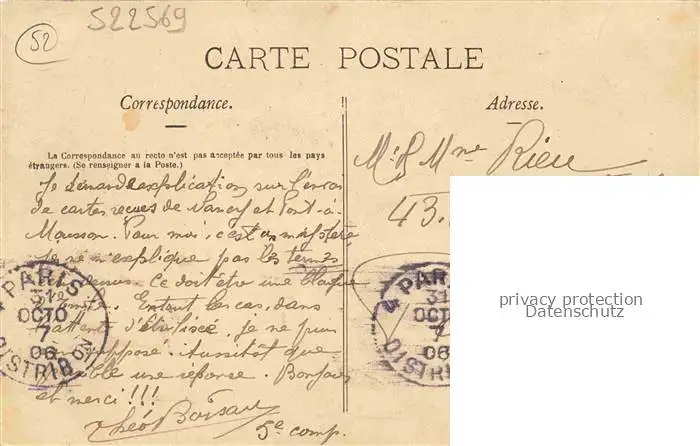 522569
52
CARTE POSTALE
Correspondance.
Adresse.
La Correspondance au recto n'est pas acceptée par tous les pays
étrangers. (Se renseigner à la Poste.)
Mr & Mme Rieu
43.
Je demande explication sur l'envoi
de cartes reçues de Nancy et Pont-à-
Mousson. Pour moi, c'est un mystère
Je ne m'explique pas les termes
dessus. Ce doit être une blague
En tout les cas, dans
l'attente d'être fixé, je ne puis
supposé. Aussitôt que
possible une réponse. Bonjour
et merci !!!
Théo
5e comp.
PARIS
31
OCTO
7
06
DISTRIBON
PARIS
31
OCTO
7
06
DISTRIB
privacy protection
Datenschutz